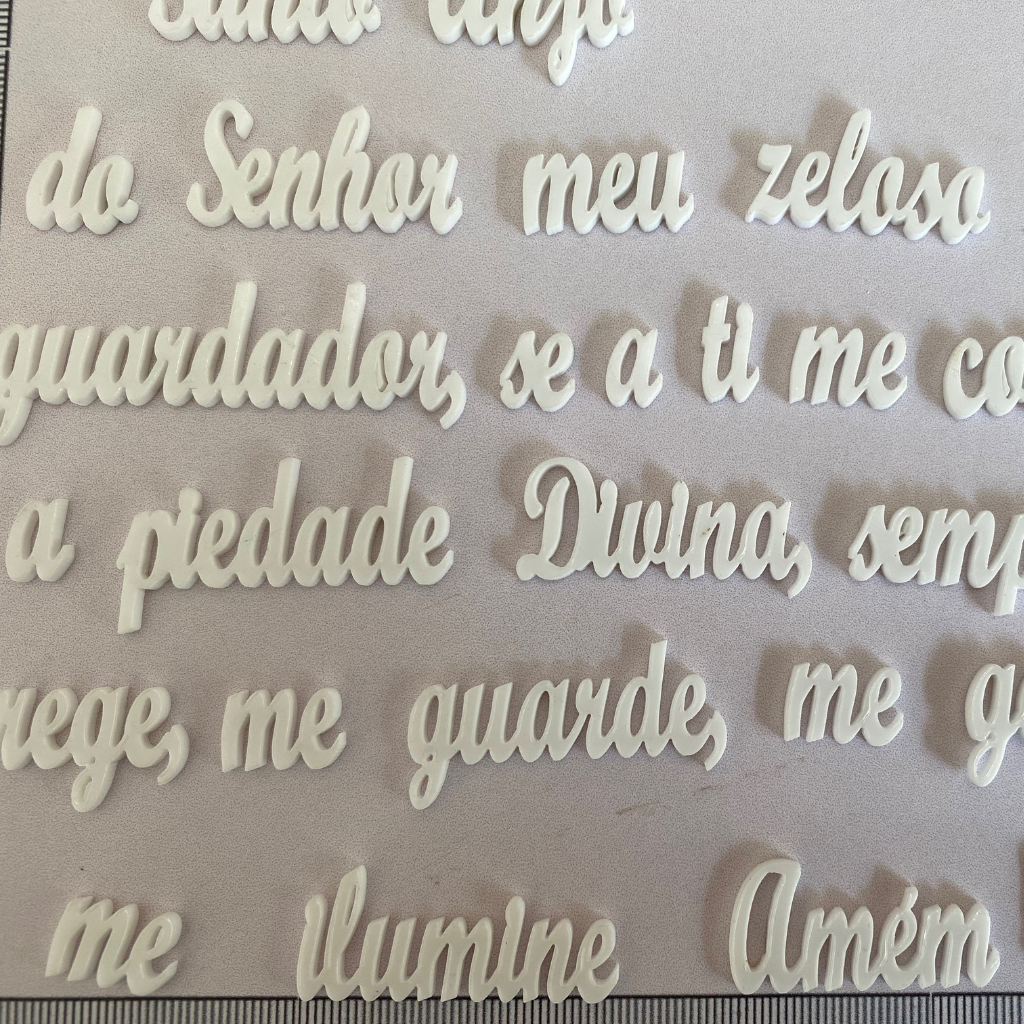 Santo anjo
do Senhor meu zeloso
guardador, se a ti me co
a piedade Divina, semp
rege, me guarde, me go
me ilumine Amém